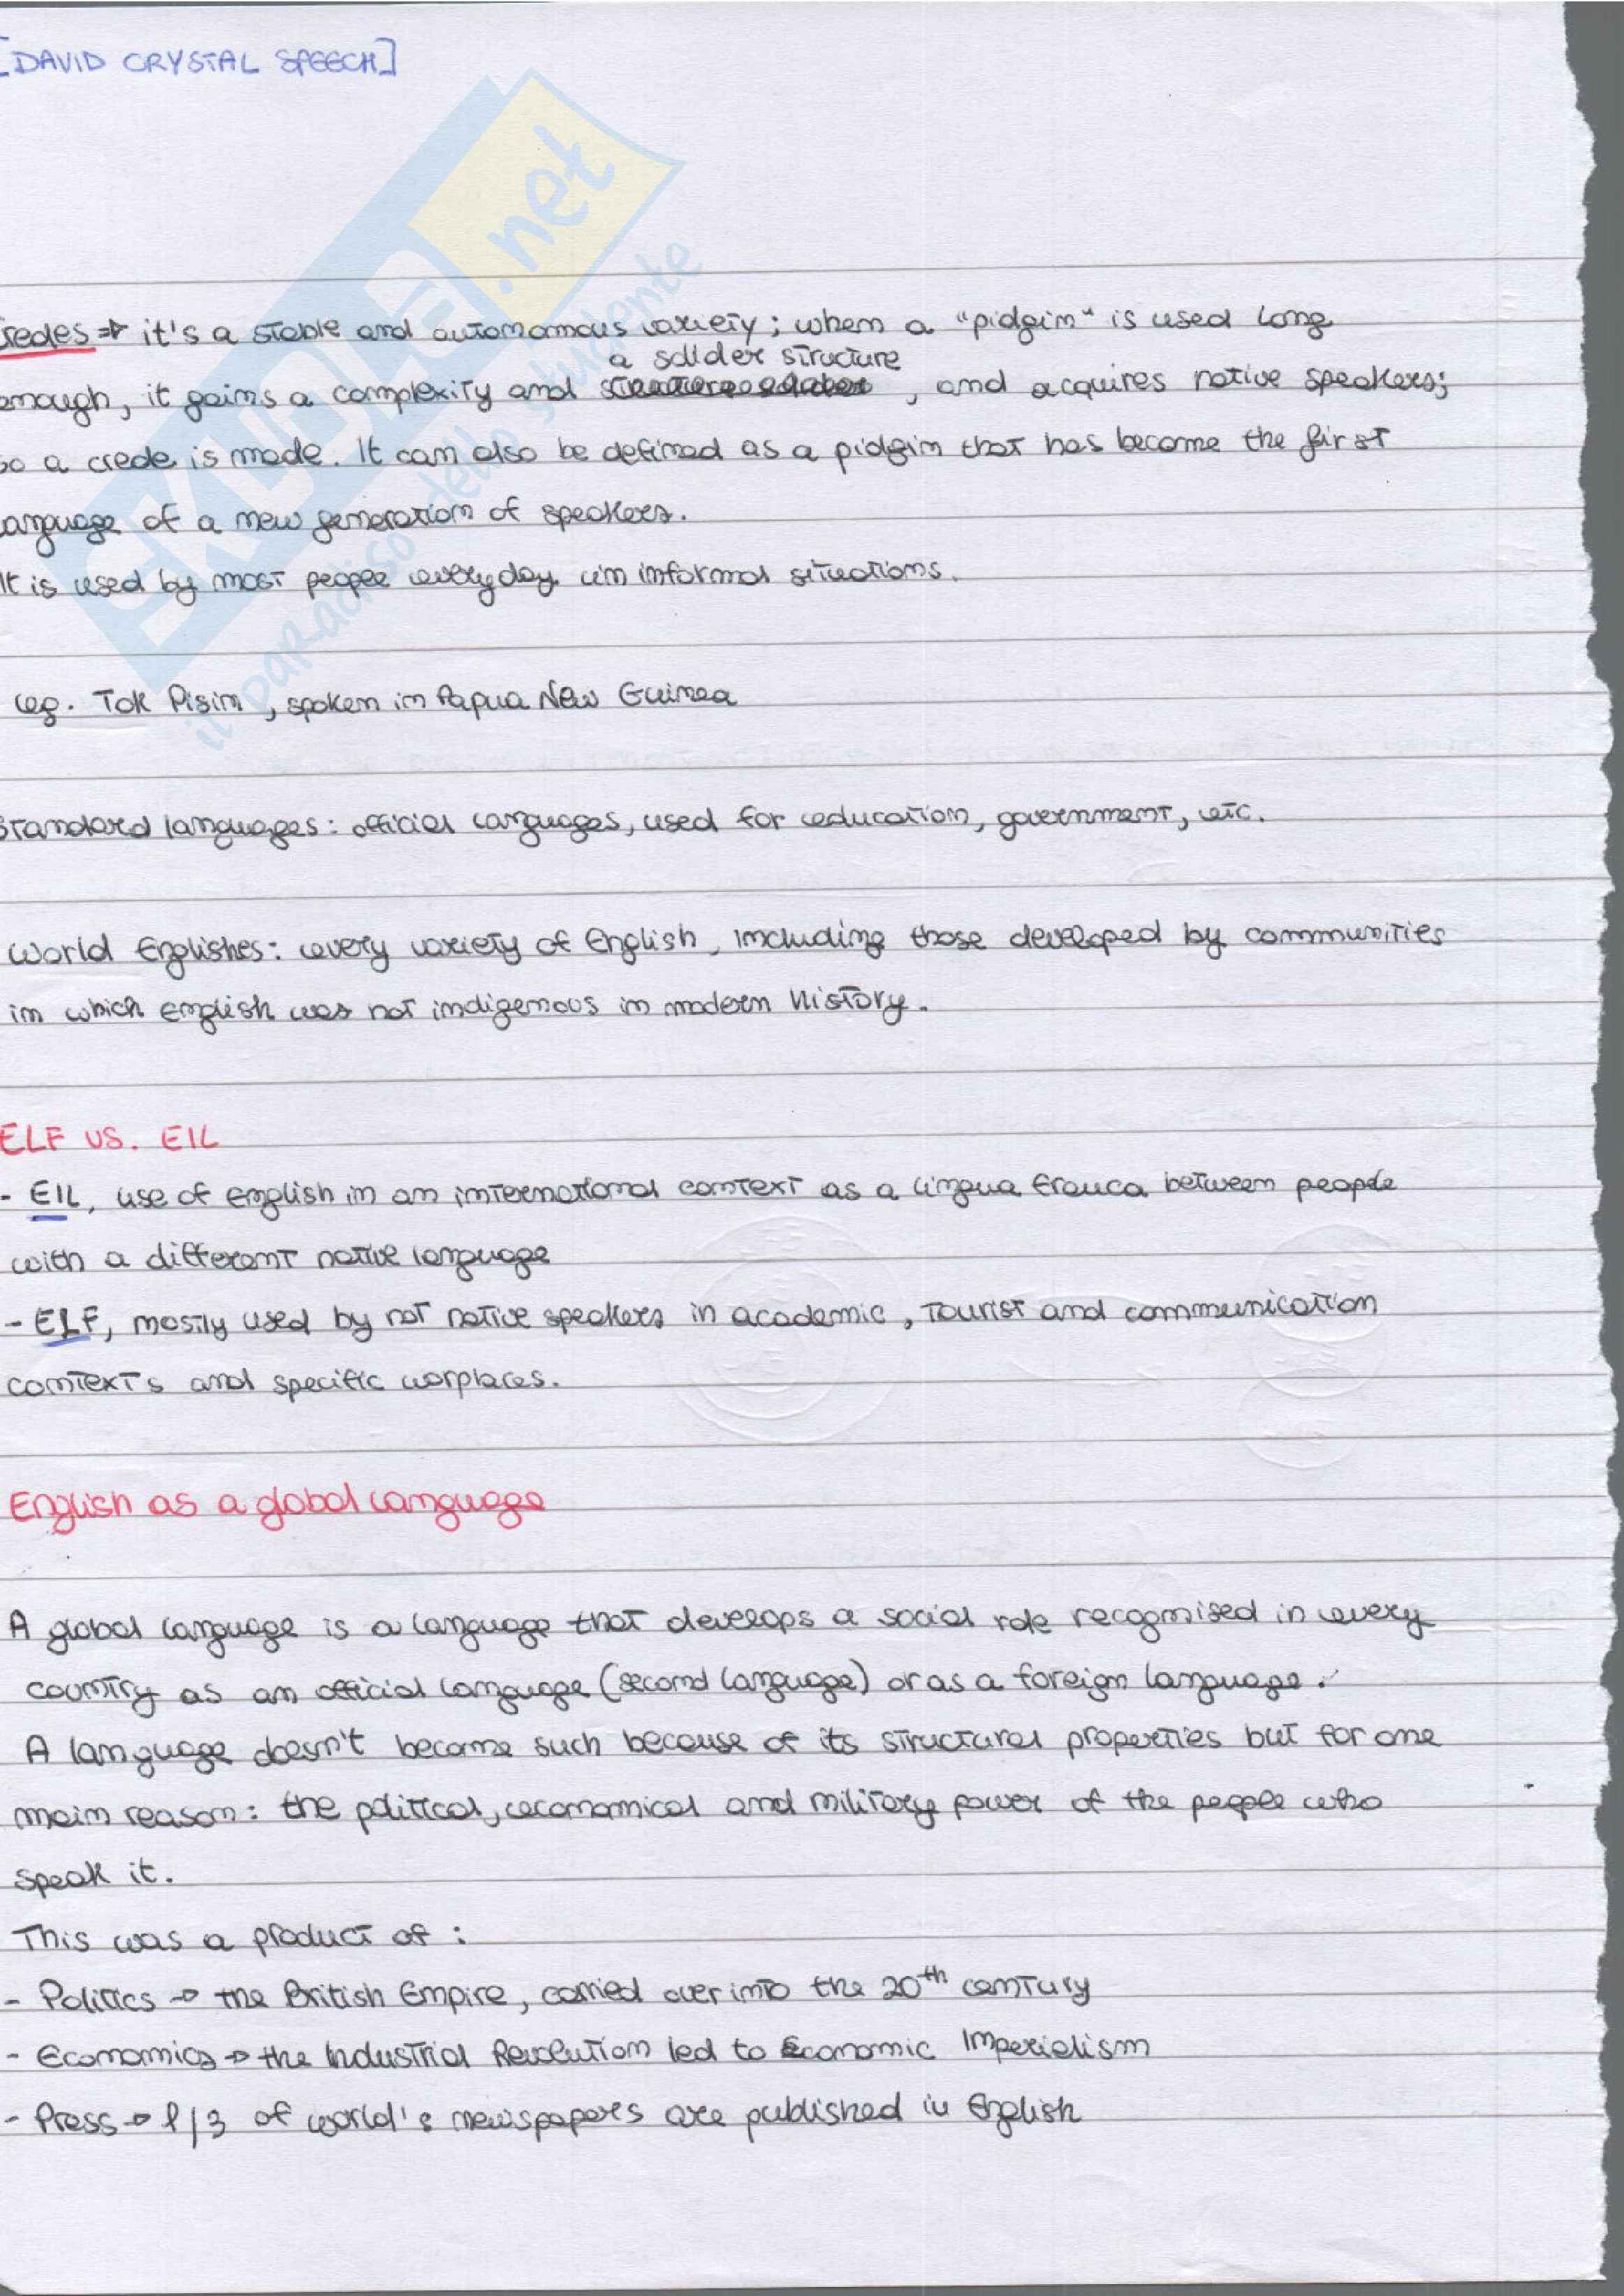 [DAVID CRYSTAL SPEECH]
SKUOLA.net
il paradiso dello studente
reoles → it's a stable and autonomous variety; when a "pidgin" is used long
a solider structure
enough, it gains a complexity and , and acquires native speakers;
so a creole is made. It can also be defined as a pidgin that has become the first
language of a new generation of speakers.
It is used by most people everyday in informal situations.
eg. Tok Pisin, spoken in Papua New Guinea
Standard languages: official languages, used for education, government, etc.
World Englishes: every variety of English, including those developed by communities
in which english was not indigenous in modern history.
ELF VS. EIL
- EIL, use of English in an international context as a lingua franca between people
with a different native language
- ELF, mostly used by not native speakers in academic, tourist and communication
contexts and specific worplaces.
English as a global language
A global language is a language that develops a social role recognised in every
country as an official language (second language) or as a foreign language.
A language doesn't become such because of its structural properties but for one
main reason: the political, economical and military power of the people who
speak it.
This was a product of:
- Politics → the British Empire, carried over into the 20th century
- Economics → the Industrial Revolution led to Economic Imperialism
- Press → 1/3 of world's newspapers are published in English